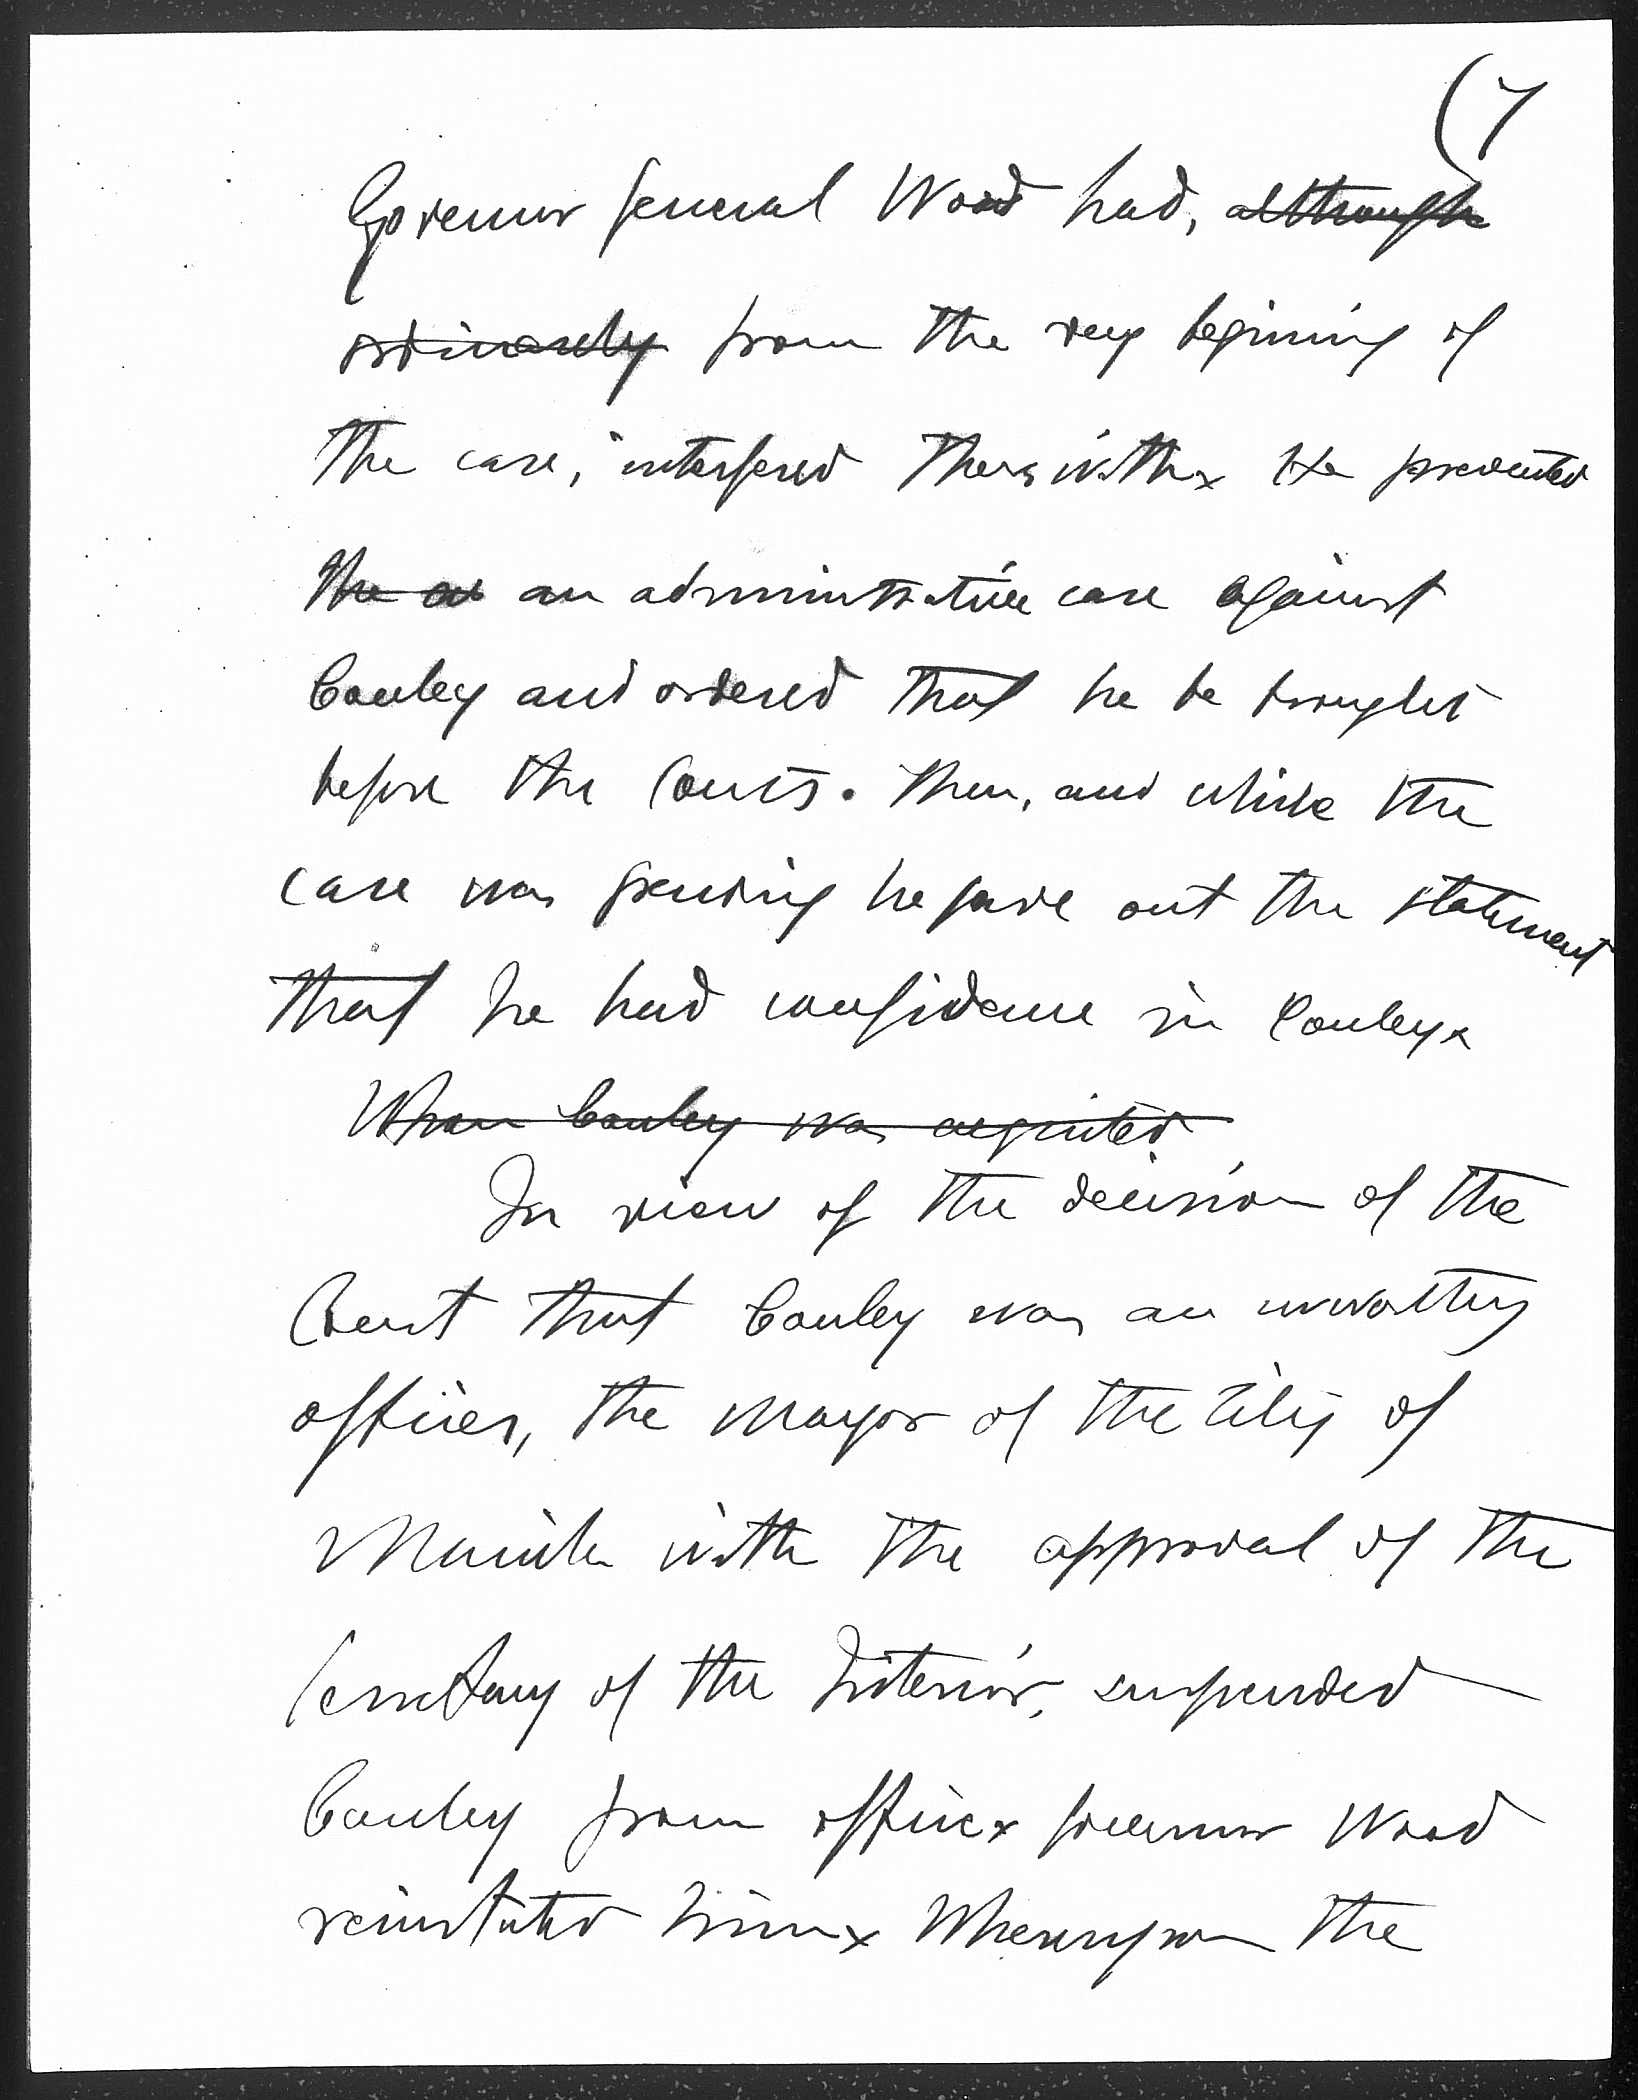 (7
Governor General Wood had, although
ordinarely from the very begining of
the case, interfered therewith x He prevented
the ad an administrative case against
Conley and ordered that he be brought
before the Courts. Then, and while the
case was pending he gave out the statement
that he had confidence in Conley x
When Conley was acquited
In view of the decision of the
Court that Conley was an unworthy
officer, the Mayor of the City of
Manila with the approval of the
Secretary of the Interior, suspended
Conley from office x Governor Wood
reinstated him x Whereupon the